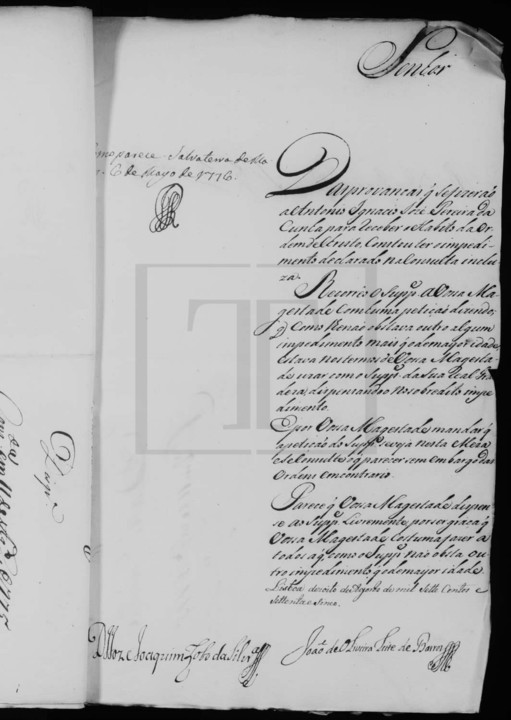 Senhor
Como parece Salvaterra de Ma
6 de Mayo de 1776.
Das provanças q̃ se fizerão
a Antonio Ignacio Joze Pereira da
Cunha para receber o Habito da Or
dem de Christo, Constou ter o impedi
mento declarado na Consulta inclu
za.
Recorreo o Supp.e a Vossa Ma
gestade com huma petição dizendo
q̃ como lhe não obstava outro algum
impedimento mais q̃ o de mayor idade
estava nos termos de Vossa Magesta
de uzar com o Supp.e da Sua Real Gran
deza, dispensando o no sobredito impe
dimento.
E por Vossa Magestade mandar q̃
a petição do Supp.e se veja nesta Meza
e se Consulte o q̃ parecer sem embargo das
Ordens em contrario.
Parece q̃ Vossa Magestade dispen
se ao Supp.e Livremente, por ser graça q̃
Vossa Magestade costuma fazer a
todos a q̃. como o Supp.e não obsta ou
tro impedimento q̃ o de mayor idade
Lisboa dezoito de Agosto de mil Sette Centos e
Settenta e sinco.
D. Joze Joaquim Lobo da Silvra
João de Oliveira Leite de Barros